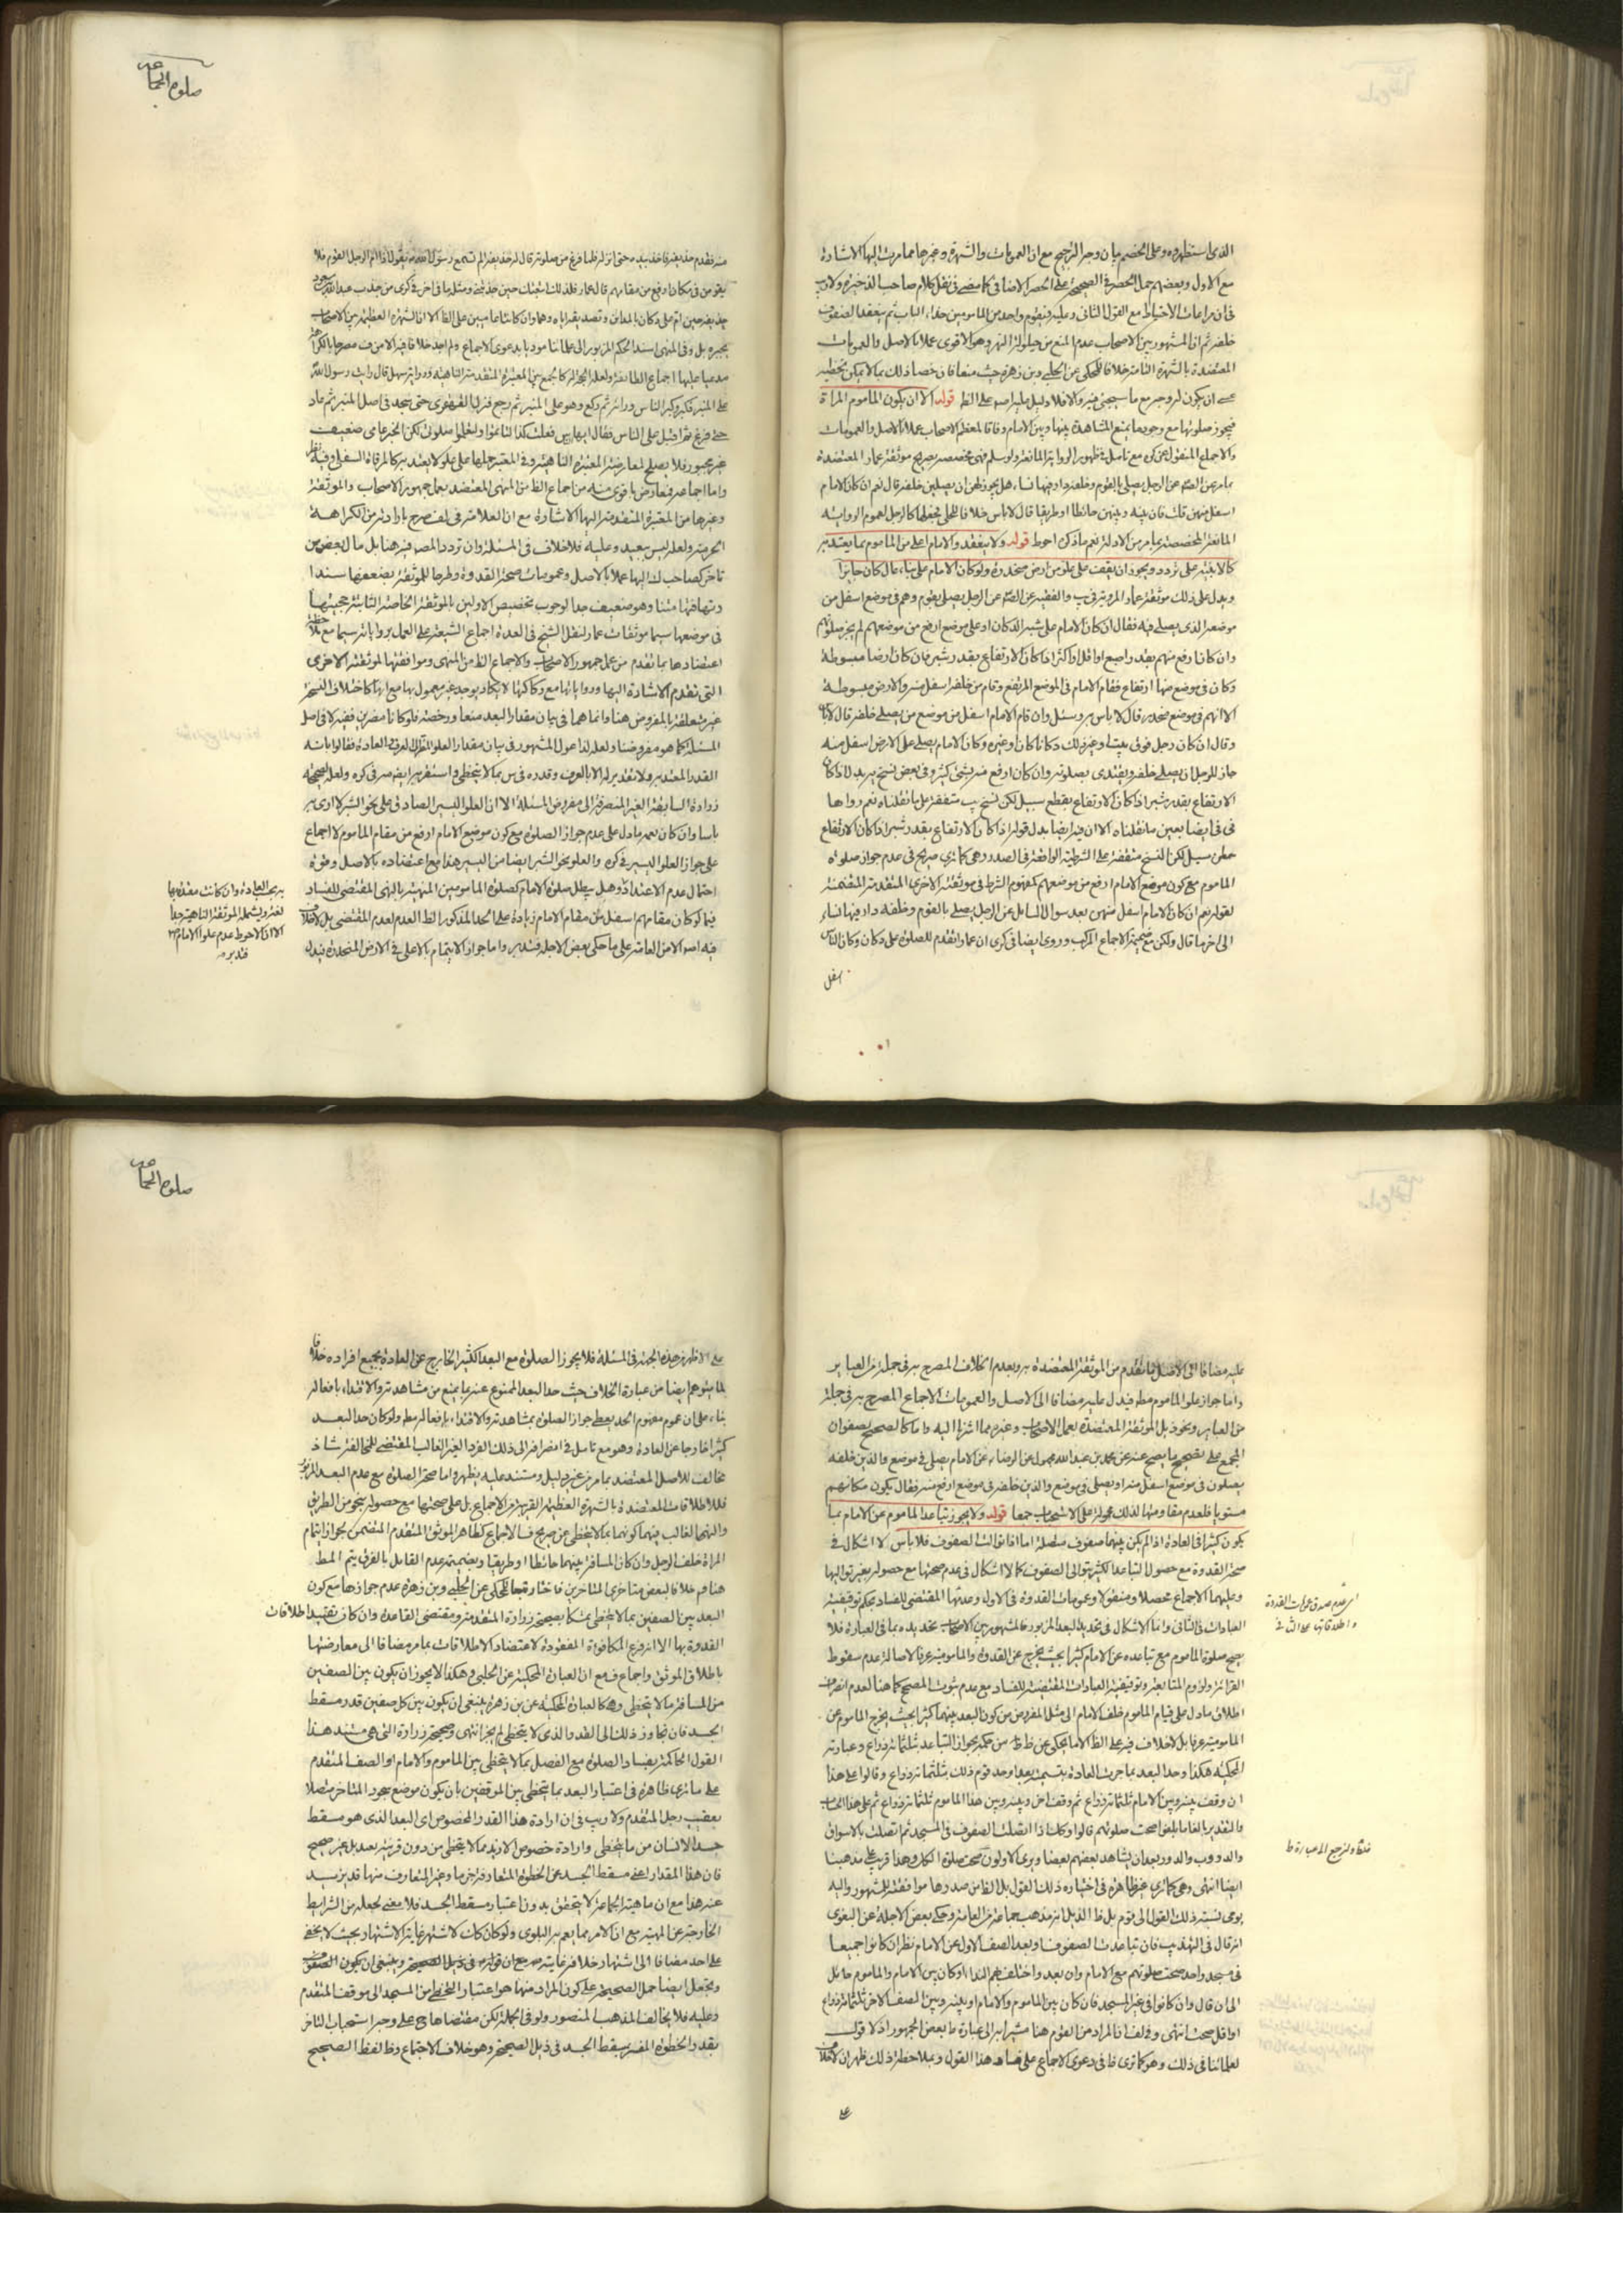 الذي استظهروه وعلى الخصم بيان وجه الترجيح مع ان العمومات والشهرة وغيرها مما مرت اليها الاشارة
مع الاول وبعضهم حمل الحصر في الصحيحة على الحصر الاضافي كما مضى في نقل كلام صاحب الذخيرة ولا ريب
في ان مراعات الاحتياط مع القول الثاني وعليه فيقوم واحد من المامومين حذاء الباب ثم ينعقد الصفوف
خلفه ثم ان المشهور بين الاصحاب عدم المنع من حيلولة النهر وهو الاقوى عملا بالاصل والعمومات
المعتضدة بالشهرة التامة خلافا للمحكي عن الحلبي وبن زهرة حيث منعا فان خصا ذلك بما لا يمكن تخطيه
عسى ان يكون له وجه مع ما سيجئ فيه والا فلا دليل عليه على الظ قوله الا ان يكون الماموم المراة
فيجوز صلوتها مع وجود ما يمنع المشاهدة بينها وبين الامام وفاقا لمعظم الاصحاب عملا بالاصل والعمومات
والاجماع المنقول عن كره مع تامل في ظهور الرواية المانعة ولو سلم فهي مخصصة بصريح موثقة عمار المعتضدة
بما مر عن الصم عن الرجل يصلي بالقوم وخلفه دار فيها نساء هل يجوز لهن ان يصلين خلفه قال نعم ان كان الامام
اسفل منهن قلت فان بينه وبينهن حائطا او طريقا قال لا باس خلافا للحلي فجعلها كالرجل لعموم الرواية
المانعة المخصصة بما مر من الادلة نعم ما ذكره احوط قوله ولا ينعقد والامام اعلى من الماموم بما يعتد به
كالابنية على تردد ويجوز ان يقف على علو من ارض منحدرة ولو كان الامام على بناء عال كان جايزا
ويدل على ذلك موثقة عمار المروية في يب والفقيه عن الصم عن الرجل يصلي بقوم وهم في موضع اسفل من
موضعه الذي يصلي فيه فقال ان كان الامام على شبه الدكان او على موضع ارفع من موضعهم لم يجز صلوتهم
وان كان ارفع منهم بقدر اصبع او اقل او اكثر اذا كان الارتفاع بقدر شبر فان كان ارضا مبسوطة
وكان في موضع منها ارتفاع فقام الامام في الموضع المرتفع وقام من خلفه اسفل منه والارض مبسوطة
الا انهم في موضع منحدر قال لا باس به وسئل وان قام الامام اسفل من موضع من يصلي خلفه قال لا باس
وقال ان كان رجل فوق بيت او غير ذلك دكانا كان او غيره وكان الامام يصلي على الارض اسفل منه
جاز للرجل ان يصلي خلفه ويقتدي بصلوته وان كان ارفع منه بشئ كثير وفي بعض نسخ يب بدل اذا كان
الارتفاع بقدر شبر اذا كان الارتفاع بقطع سبيل لكن نسخ يب متفقة بل ما نقلناه نعم رواها
في في ايضا بعين ما نقلناه الا ان فيه ايضا بدل قوله اذا كان الارتفاع بقدر شبر اذا كان الارتفاع
ببطن سيل لكن النسخ متفقة على الشرطية الواقعة في الصدر وهي كما ترى صريح في عدم جواز صلوة
الماموم مع كون موضع الامام ارفع من موضعهم كمفهوم الشرط في موثقته الاخرى المتقدمة المتضمنة
لقوله نعم ان كان الامام اسفل منهن بعد سوال السائل عن الرجل يصلي بالقوم وخلفه دار فيها نساء
الى اخر ما قال ولكن مع ضميمة الاجماع المركب وروى ايضا في كرى ان عمار تقدم للصلوة على دكان وكان الناس
اسفل
صلوة الجماعة
منه فتقدم حذيفة فاخذ بيده حتى انزله فلما فرغ من صلوته قال له حذيفة الم تسمع رسول الله يقول اذا ام الرجل القوم فلا
يقومن في مكان ارفع من مقامهم قال عمار فلذلك اتبعتك حين جذبتني ومثلها في اخر في كرى من جذب عبد الله بن مسعود
حذيفة حين ام على دكان بالمداين وتصديقه اياه وهما وان كانتا عاميين على الظ الا ان الشهرة العظيمة بين الاصحاب
بجبره بل وفي المنهى اسند الحكم المزبور الى علمائنا موذنا بدعوى الاجماع ولم اجد خلافا فيه الا من ف مصرحا بالكراهة
مدعيا عليها اجماع الطائفة ولعله الحجة له كالجمع بين المعتبرة المتقدمة الناهية ورواية سهل قال رايت رسول الله
على المنبر فكبر وكبر الناس ورائه ثم ركع وهو على المنبر ثم رجع فنزل القهقرى حتى سجد في اصل المنبر ثم عاد
حتى فرغ ثم اقبل على الناس فقال ايها الناس فعلت كذا لتاتموا ولتعلموا صلوتي لكن الخبر عامي ضعيف
غير مجبور فلا يصلح لمعارضة المعتبرة الناهية وفي المعتبر حملها على علو لا يعتد به كالمرقاة السفلى وفيه نظر
واما اجماعه فمعارض باقوى منه من اجماع الظ من المنهى المعتضد بعمل جمهور الاصحاب والموثقة
وغيرها من المعتبرة المتقدمة اليها الاشارة مع ان العلامة في لف صرح بارادته من الكراهة
الحرمة ولعله ليس ببعيد وعليه فلا خلاف في المسئلة وان تردد المصم فيه هنا بل مال بعض من
تاخر كصاحب ك اليها عملا بالاصل وعمومات صحة القدوة وطرحا للموثقة بضعفها سندا
وتهافتها متنا وهو ضعيف جدا لوجوب تخصيص الاولين بالموثقة الخاصة الثابتة حجيتها
في موضعها سيما موثقات عمار لنقل الشيخ في العدة اجماع الشيعة على العمل برواياته سيما مع ملاحظة
اعتضادها بما تقدم من عمل جمهور الاصحاب والاجماع الظ من المنهى وموافقتها لموثقته الاخرى
التي تقدم الاشارة اليها ورواياتها مع ركاكتها لا يكاد يوجد غير معمول بها مع انها كاختلاف النسخ
غير متعلقة بالمفروض هنا وانما هما في بيان مقدار البعد منعا ورخصة فلو كانا مضرين ففيه لا في اصل
المسئلة كما هو مفروضنا ولعله لذا عول المشهور في بيان مقدار العلو المنظور اليه لعرف العادة فقالوا بانه
القدر المعتد به ولا تقدير له الا بالعرف وقدره في س بما لا يتخطى واستقر به ايضا في كره ولعله لصحيحة
زرارة السابقة الغير المنصرفة الى مفروض المسئلة الا ان العلو اليسير الصادق على نحو الشبر لا ارى به
باسا وان كان يعمه ما دل على عدم جواز الصلوة مع كون موضع الامام ارفع من مقام الماموم لا اجماع
على جواز العلو اليسير في كره والعلو بنحو الشبر ايضا من اليسير هذا مع اعتضاده بالاصل وقوة
احتمال عدم الاعتداد وهل يبطل صلوة الامام كصلوة المامومين المنهية بالنهى المقتضي للفساد
فيما لو كان مقامهم اسفل من مقام الامام زيادة على الحد المذكور الظ العدم لعدم المقتضي بل لا خلاف
فيه الا من العامة على ما حكى بعض الاجلة فتدبر واما جواز الايتمام بالاعلى في الارض المنحدرة فيدل
به بحسب العادة وان كانت معتدا بها
لغة ويشمله الموثقة الناهية جدا
الا ان الاحوط عدم علو الامام
فتدبر منه
عليه مضافا الى الاصل ما تقدم من الموثقة المعتضدة به وبعدم الخلاف المصرح به في جملة من العباير
واما جواز علو الماموم مطم فيدل عليه مضافا الى الاصل والعمومات الاجماع المصرح به في جملة
من العباير ونحو ذيل الموثقة المعتضدة بعمل الاصحاب وغيره مما اشرنا اليه واما كالصحيح بصفوان
المجمع على تصحيح ما يصح عنه عن محمد بن عبد الله مجهول عن الرضاء عن الامام يصلي في موضع والذين خلفه
يصلون في موضع اسفل منه او يصلي في موضع والذين خلفه في موضع ارفع منه فقال يكون مكانهم
مستويا فلعدم مقاومتها لذلك محمولة على الاستحباب جمعا قوله ولا يجوز تباعد الماموم عن الامام بما
يكون كثيرا في العادة اذا لم يكن بينهما صفوف متصلة اما اذا توالت الصفوف فلا باس لا اشكال في
صحة القدوة مع حصول التباعد الكثير بتوالي الصفوف كما لا اشكال في عدم صحتها مع حصوله بغير تواليها
وعليهما الاجماع محصلا ومنقولا وعمومات القدوة في الاول وعدمها المقتضي للفساد بحكم توقيفية
العبادات في الثاني وانما الاشكال في تحديد البعد المزبور فالمشهور بين الاصحاب تحديده بما في العبارة فلا
يصح صلوة الماموم مع تباعده عن الامام كثيرا بحيث يخرج عن القدوة والمامومية عرفا لاصالة عدم سقوط
القرائة ولزوم المتابعة وتوقيفية العبادات المقتضية للفساد مع عدم ثبوت المصحح كما هنا لعدم انصراف
اطلاق ما دل على قيام الماموم خلف الامام الى مثل المفروض من كون البعد بينهما كثيرا بحيث يخرج الماموم عن
المامومية عرفا بل لا خلاف فيه على الظ الا ما يحكى عن ف ط من حكمه بجواز التباعد ثلثمائة ذراع وعبارته
المحكية هكذا وحد البعد بما جرت العادة بتسميته بعدا وحد قوم ذلك بثلثمائة ذراع وقالوا على هذا
ان وقف بينه وبين الامام ثلثمائة ذراع ثم وقف اخر وبينه وبين هذا الماموم ثلثمائة ذراع ثم على هذا الحساب
والتقدير بالغا ما بلغوا صحت صلوتهم قالوا وكك اذا اتصلت الصفوف في المسجد ثم اتصلت بالاسواق
والدروب والدور بعد ان يشاهد بعضهم بعضا ويرى الاولون صحت صلوة الكل وهذا قريب على مذهبنا
ايضا انتهى وهي كما ترى غير ظاهرة في اختياره ذلك القول بل الظ من صدرها موافقته للمشهور واليه
يومى نسبته ذلك القول الى قوم بل ظ الذيل انه مذهب جماعة من العامة وحكى بعض الاجلة عن البغوي
انه قال في التهذيب فان تباعدت الصفوف او بعد الصف الاول عن الامام نظر ان كانوا جميعا
في مسجد واحد صحت صلوتهم مع الامام وان بعد واختلف بهم النداء او كان بين الامام والماموم حايل
الى ان قال وان كانوا في غير المسجد فان كان بين الماموم والامام او بينه وبين الصف الاخر ثلثمائة ذراع
او اقل صحت انتهى وفي لف ان المراد من القوم هنا مشيرا به الى عبارة ط بعض الجمهور اذ لا قول
لعلمائنا في ذلك وهو كما ترى ظ في دعوى الاجماع على فساد هذا القول وبملاحظة ذلك ظهر ان لا خلاف
على
اي عدم صدق عمومات القدوة
صلوة الجماعة
على الاظهر هذه الجهة في المسئلة فلا يجوز الصلوة مع البعد الكثير الخارج عن العادة بجميع افراده خلافا
لما يتوهم ايضا من عبارة الخلاف حيث حد البعد الممنوع عنه بما يمنع من مشاهدته والاقتداء بافعاله
بناء على ان عموم مفهوم الحد يعطي جواز الصلوة بمشاهدته والاقتداء بافعاله مطم ولو كان حد البعد
كثيرا خارجا عن العادة وهو مع تامل في انصرافه الى ذلك الفرد الغير الغالب المقتضي للمخالفة شاذ
مخالف للاصل المعتضد بما مر من غير دليل ومستند عليه يظهر واما صحة الصلوة مع عدم البعد المزبور
فللاطلاقات المعتضدة بالشهرة العظيمة القريبة من الاجماع بل على صحتها مع حصوله بنحو من الطريق
والنهر الغالب فيهما كونهما بما لا يتخطى عن صريح ف الاجماع كظاهر الموثق المتقدم المتضمن لجواز ايتمام
المراة خلف الرجل وان كان المسافة بينهما حائطا او طريقا وبضميمة عدم القايل بالفرق يتم المط
هنا فهو خلافا لبعض متاخري المتاخرين فاختار وفاقا للمحكي عن الحلبي وبن زهرة عدم جوازها مع كون
البعد بين الصفين بما لا يتخطى تمسكا بصحيحة زرارة المتقدمة ومقتضى القاعدة وان كان تقييد اطلاقات
القدوة بها الا انه فرع المكافوة المفقودة لاعتضاد الاطلاقات بما مر مضافا الى معارضتها
باطلاق الموثق واجماع ف مع ان العبارة المحكية عن الحلبي هكذا لا يجوز ان يكون بين الصفين
من المسافة ما لا يتخطى وهكا لعبارة المحكية عن بن زهرة ينبغي ان يكون بين كل صفين قدر مسقط
الجسد فان تجاوز ذلك الى القدر الذي لا يتخطى لم يجز انتهى وصحيحة زرارة التي هي مستند هذا
القول الحاكمة بفساد الصلوة مع الفصل بما لا يتخطى بين الماموم والامام او الصف المتقدم
على ما ترى ظاهرة في اعتبار البعد بما يتخطى بين الموقفين بان يكون موضع سجود المتاخر متصلا
بعقب رجل المتقدم ولا ريب في ان ارادة هذا القدر المخصوص اي البعد الذي هو مسقط
جسد الانسان من ما يتخطى وارادة خصوص الازيد مما لا يتخطى من دون قرينة بعيد بل غير صحيح
فان هذا المقدار اعني مسقط الجسد عن الخطوة المتعارفة خرج ما وغير المتعارف منها قد يزيد
عنه هذا مع ان ماهية الجماعة لا يتحقق بدون اعتبار مسقط الجسد فلا معنى لجعله من الشرايط
الخارجة عن المهية مع ان الامر مما يعم به البلوى ولو كان كك لاشتهر غاية الاشتهار بحيث لا يخفى
على احد مضافا الى اشتهار خلافه غايته مع ان قوله في ذيل الصحيحة وينبغي ان يكون الصفوف
ويحتمل ايضا حمل الصحيحة على كون المراد منها هو اعتبار التخطي من المسجد الى موقف المتقدم
وعليه فلا يخالف المذهب المنصور ولو في الجملة لكن مقتضاها ح على وجه استحباب التاخر
بقدر الخطوة المفسر بمسقط الجسد في ذيل الصحيحة وهو خلاف الاجماع وظ لفظ الصحيح